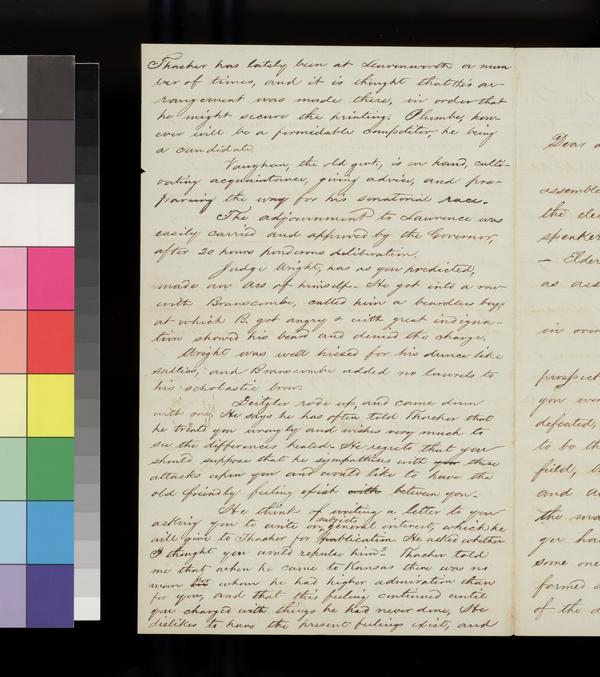 Thacher has lately been at Leavenworth a num
ber of times, and it is thought that this ar-
rangement was made there, in order that
he might secure the printing. Plumbe, how-
ever will be a formidable competitor, he being
a candidate.
Vaughan, the old gent, is on hand, culti-
vating acquaintance, giving advice, and pre-
paring the way for his senatorial race.
The adjournment to Lawrence was
easily carried and approved by the Governor,
after 20 hours ponderous deliberation.
Judge Wright, has as you predicted,
made an Ass of himself. He got into a row
with Branscombe, called him a beardless boy,
at which B. got angry & with great indigna-
tion showed his beard and denied the charge.
Wright was well hissed for his dunce like
sallies, and Branscombe added no laurels to
his scholastic brow.
Deitzler rode up, and came down
with me. He says he has often told Thacher that
he treats you wrongly and wishes very much to
see the differences healed. He regrets that you
should suppose that he sympathises with your these
attacks upon you and would like to have the
old friendly feeling exist with between you.
He thinks of writing a letter to you
asking you to write on general subjects interest, which he
will give to Thacher for publication. He asked whether
I thought you would repulse him? Thacher told
me that when he came to Kansas there was no
man whom he had higher admiration than
for you, and that this feeling continued until
you charged with things he had never done. He
dislikes to have the present feelings exist, and
Dear
assemble
the elec
speaker
- Elder
as ass
in over
prospect
you wou
defeated,
to be th
field, b
and a
the ma
yer ha
some one
formed
of the d